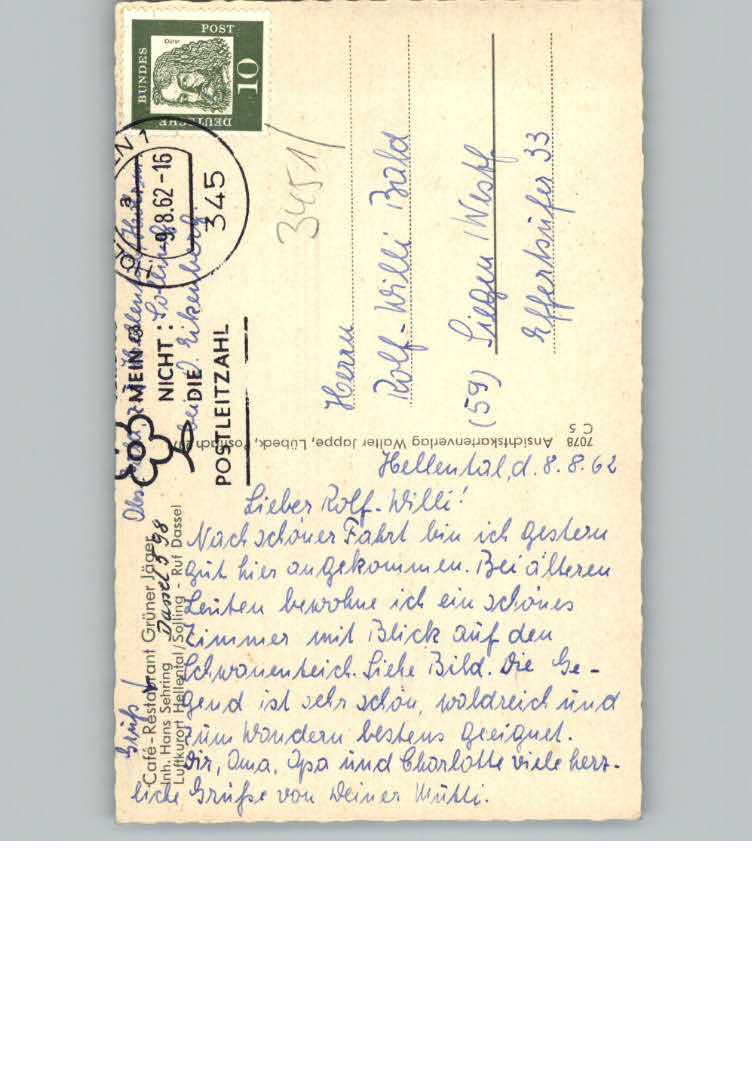 DEUTSCHE
BUNDES
POST
Dürer
10
9.8.62-16
345
3451/
NICHT:
DIE
POSTLEITZAHL
Herrn
Rolf-Willi Bald
(59) Siegen/Westf
Effertsufer 33
7078 Ansichtskartenverlag Walter Jappe, Lübeck,
C 5
Café-Restaurant Grüner Jäger
Inh. Hans Sehring
Dassel 598
Luftkurort Hellental/Solling - Ruf Dassel
Hellental, d. 8.8.62
Lieber Rolf-Willi!
Nach schöner Fahrt bin ich gestern
gut hier angekommen. Bei älteren
Leuten bewohne ich ein schönes
Zimmer mit Blick auf den
Schwanenteich. Siehe Bild. Die Ge-
gend ist sehr schön, waldreich und
zum Wandern bestens geeignet.
Dir, Oma, Opa und Charlotte viele herz-
liche Grüße von Deiner Mutti.